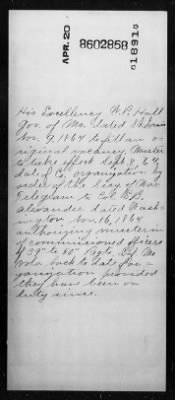 APR. 20
8602858
1891
His Excellency W.P. Hall
Gov. of Mo. dated St Louis
Nov. 9, 1864 to fill an o-
riginal vacancy. Muster
to take effect Sept 8, 64,
date of Co. organization by
order of the Secy of War
Telegram to Col. 
Alexander dated Wash-
ington Nov. 16, 1864
authorizing muster in
of commissioned officers
of 39" to 50" Regts. Inf Mo
Vols back to date of or-
ganization provided
they have been on
duty since.